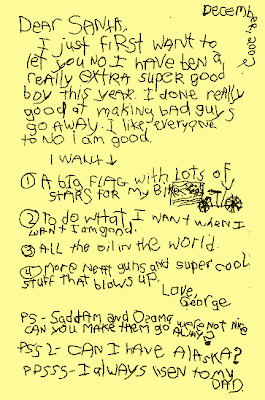 Decemb
Dear Santa,
I just first want to
let you no I have ben a
really extra super good
boy this year. I done really
good at making bad guys
go away. I like everyone
to no I am good.
I want ↓
① A big flag with lots of
stars for my bike
② To do what I want when I
want I am good.
③ All the oil in the world.
④ more neat guns and super cool
stuff that blows up.
Love,
George
PS - Saddam and Osama were not nice
can you make them go away?
PSS 2 - can I have Alaska?
PPSSS - I always lisen to my
DAD.